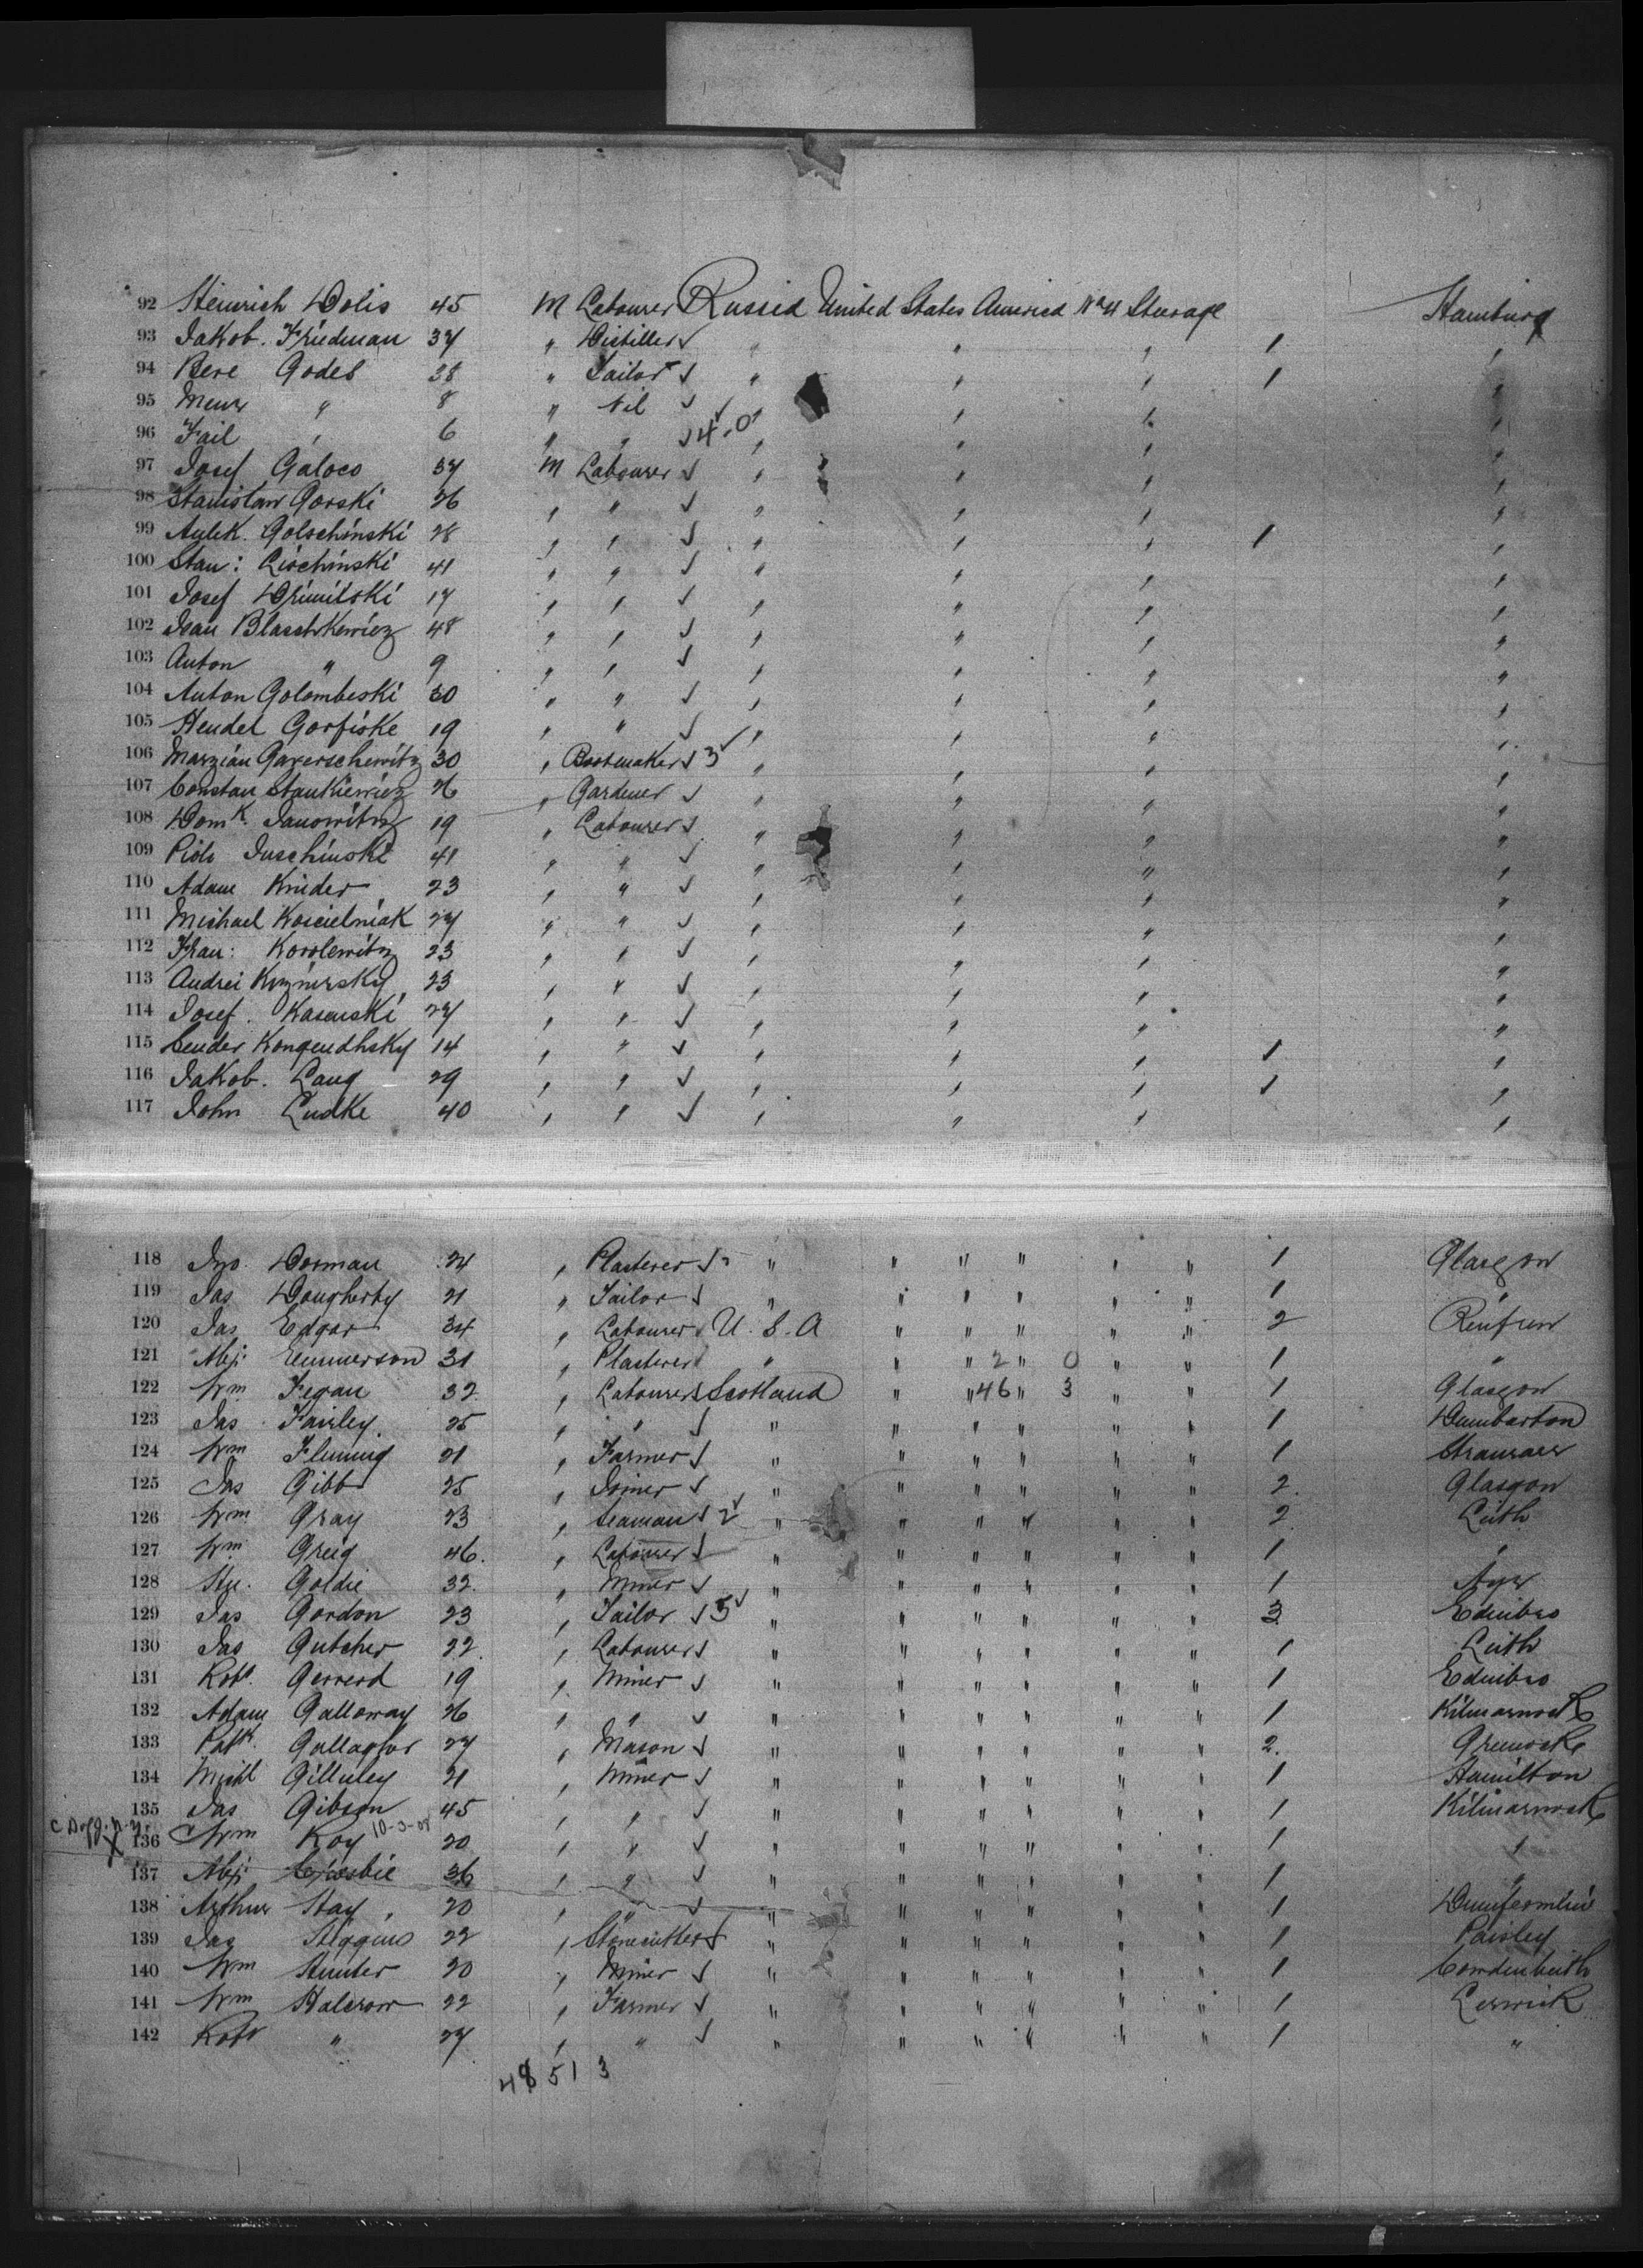 92 Heinrich Dolis 45 M Labourer Russia United States America No 4 Steerage Hamburg
93 Jakob. Friedman 37 " Distiller " " " 1 "
94 Bere Godeb 38 " Tailor " " " 1 "
95 " 8 " Nil " " " "
96 Fail " 6 " " 4.0 " " " "
97 Josef Galoco 37 M Labourer " " " "
98 Stanislaw Gorski 26 " " " " " "
99 Golschinski 28 " " " " " 1 "
100 Stan: Lischinski 41 " " " " " "
101 Josef 17 " " " " " "
102 Blaschkewicz 48 " " " " " "
103 Anton " 9 " " " " " "
104 Anton Golombeski 30 " " " " " "
105 Hendel Gorfiske 19 " " " " " "
106 Marzian Gaverschewitz 30 " Bootmaker 3 " " " "
107 Constan Stankiewicz 26 " Gardener " " " "
108 Domk. Janowitz 19 " Labourer " " " "
109 Juschinski 41 " " " " " "
110 Adam 23 " " " " " "
111 Michael Koscielniak 27 " " " " " "
112 Fran: Korolewitz 23 " " " " " "
113 Andrei 23 " " " " " "
114 Josef. Kasenski 27 " " " " " "
115 Kongendhsky 14 " " " " " 1 "
116 Jakob. Lang 29 " " " " " 1 "
117 John Ludke 40 " " " " " "
118 Jno. Dorman 24 " Plasterer " " " " " " 1 Glasgow
119 Jas Dougherty 21 " Tailor " " " " " " 1 "
120 Jas Edgar 34 " Labourer U.S.A " " " " " 2 Renfrew
121 Emmerson 31 " Plasterer " " " 2 " 0 " " 1 "
122 Wm Fegan 32 " Labourer Scotland " " 46 " 3 " " 1 Glasgow
123 Jas Fairley 25 " " " " " " " " 1 Dumbarton
124 Wm Fleming 21 " Farmer " " " " " " 1 Stranraer
125 Jas Gibb 25 " Joiner " " " " " " 2 Glasgow
126 Wm Gray 23 " Seaman 2 " " " " " " 2 Leith
127 Wm Greig 46 " Labourer " " " " " " 1 "
128 Goldie 32 " Miner " " " " " " 1 Ayr
129 Jas Gordon 23 " Tailor 5 " " " " " " 3 Edinbro
130 Jas Gutcher 22 " Labourer " " " " " " 1 Leith
131 Robt. Gerrerd 19 " Miner " " " " " " 1 Edinbro
132 Adam Galloway 26 " " " " " " " " 1 Kilmarnock
133 Patk. Gallagher 27 " Mason " " " " " " 2 Greenock
134 Michl Gilluley 21 " Miner " " " " " " 1 Hamilton
135 Jas Gibson 45 " " " " " " " " 1 Kilmarnock
136 Wm Roy 10-3-08 20 " " " " " " " " 1 "
X
137 Crosbie 36 " " " " " " " " 1 "
138 Arthur Hay 20 " " " " " " " " 1 Dunfermline
139 Jas Higgins 22 " Stonecutter " " " " " " 1 Paisley
140 Wm Hunter 20 " Miner " " " " " " 1 Cowdenbeith
141 Wm Halcrow 22 " Farmer " " " " " " 1 Lerwick
142 Robt " 27 " " " " " " " " 1 "
48 51 3